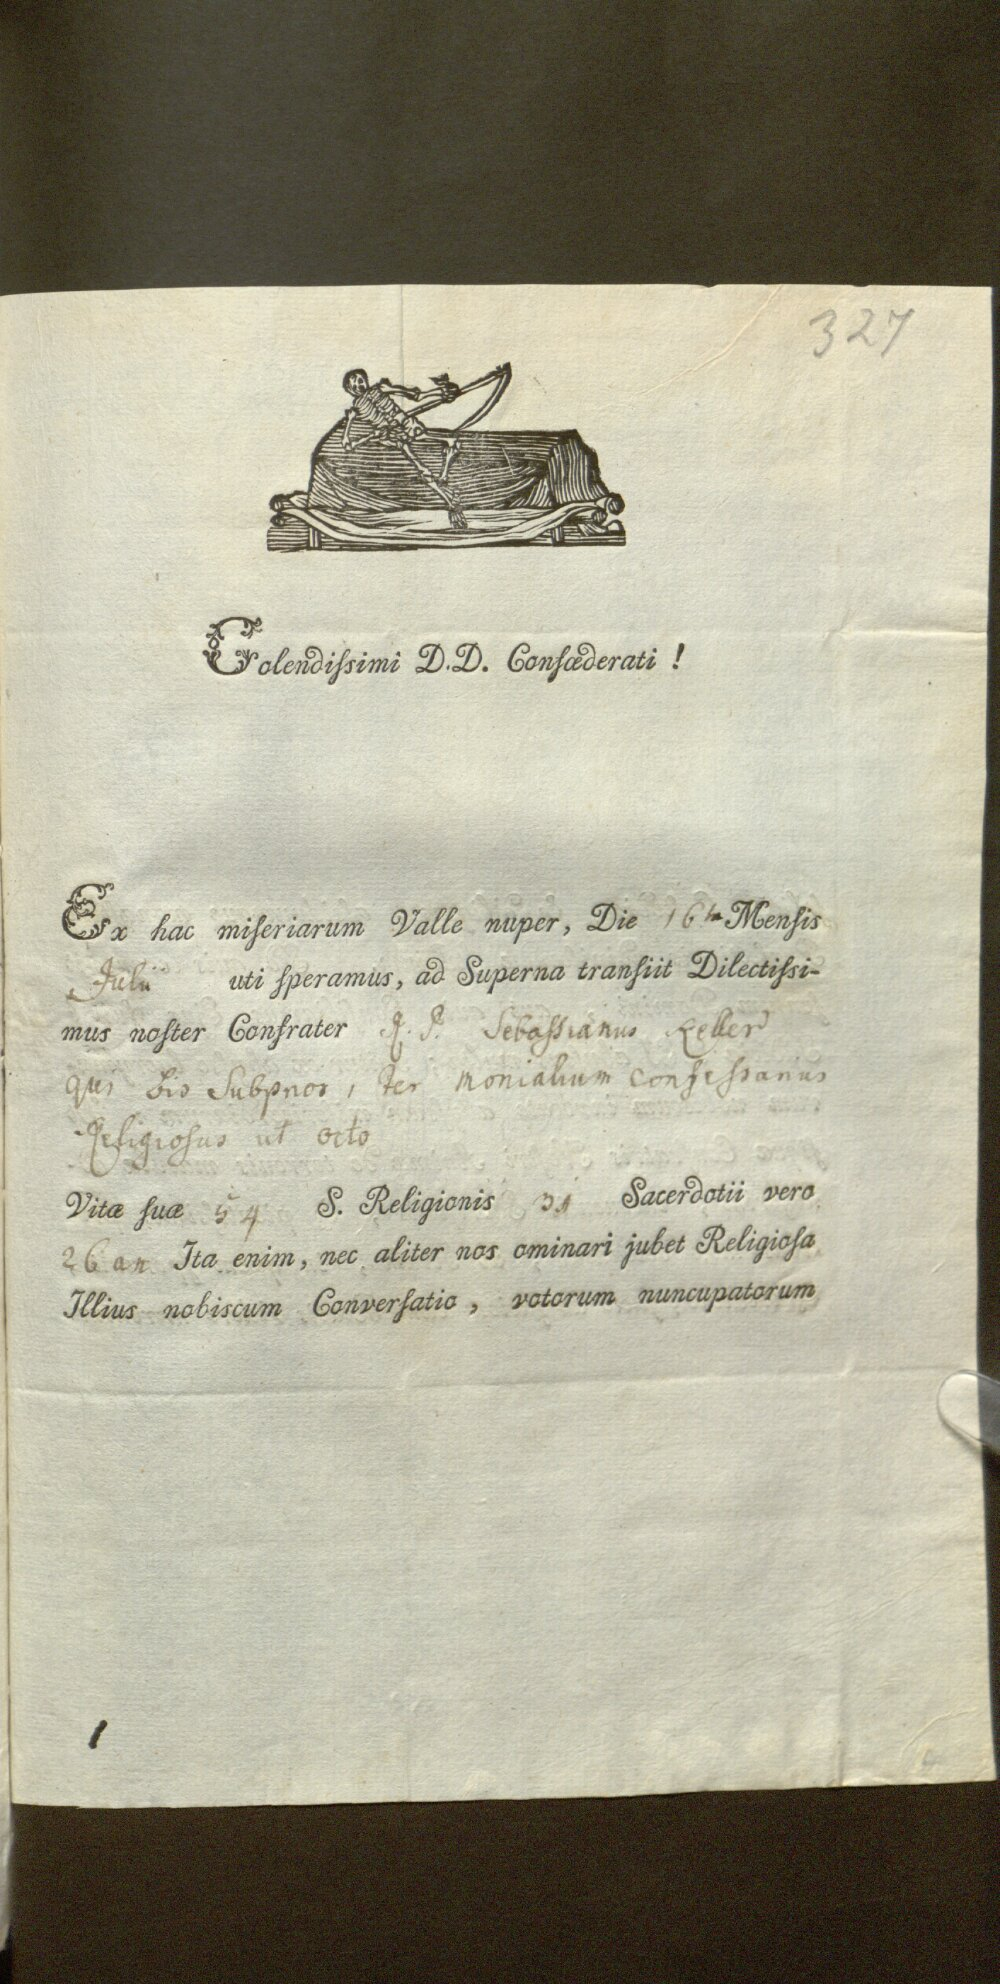 327
Colendiſsimi D.D. Confœderati !
Ex hac miſeriarum Valle nuper, Die 16ta Menſis
Julii uti ſperamus, ad Superna tranſiit Dilectiſsi-
mus noſter Confrater R. P. Sebaſtianus Keller
qui bis Subprior, ter monialium confeſsarius
Religioſus ut octo
Vitæ ſuæ 54 S. Religionis 31 Sacerdotii vero
26 an Ita enim, nec aliter nos ominari jubet Religioſa
Illius nobiscum Converſatio, votorum nuncupatorum